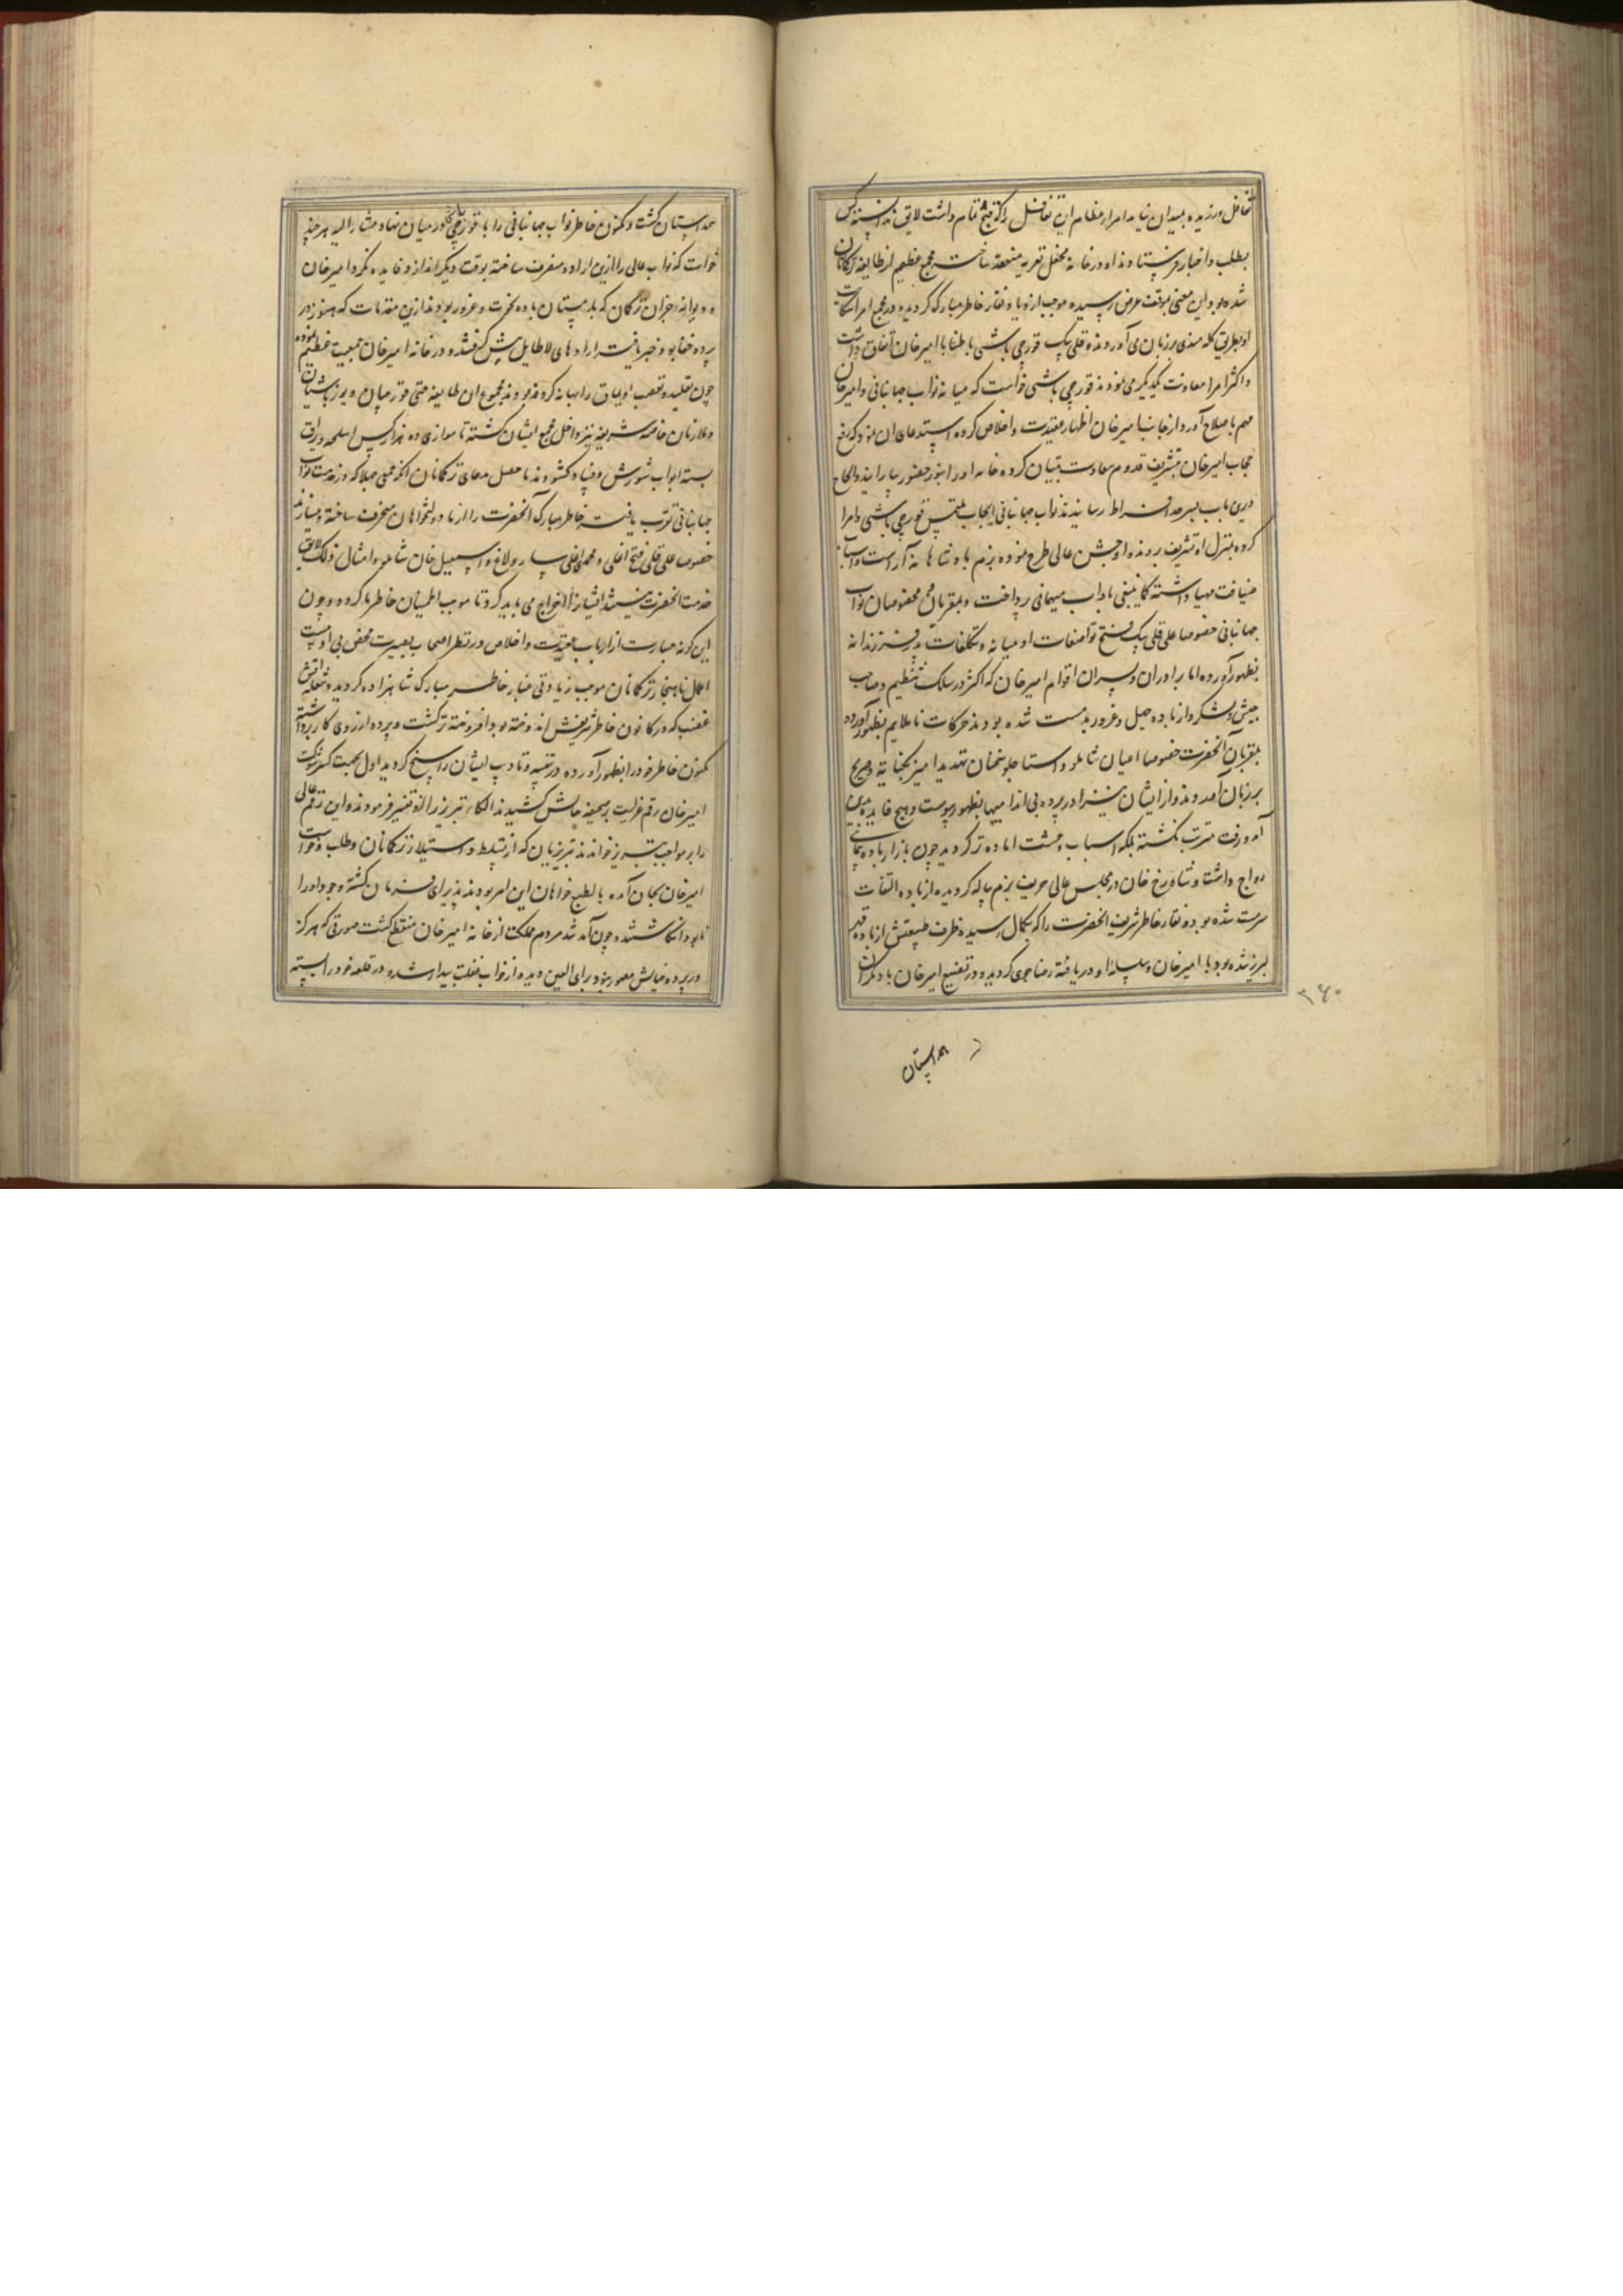 تغافل ورزیده بمیدان نیامد امراء عظام این تغافل را که قبح تمام داشت لایق ندانسته کس
بطلب و اخبار فرستادند او در خانه محفل تعزیه منعقد ساخت مجمع عظیم از طایفه ترکمانان
شده بود این معنی بموقف عرض رسیده موجب ازدیاد نقار خاطر مبارک گردیده در مجمع امرا شکایت
او بطریق گله مندی بر زبان می آوردند قلی بیک قورچی باشی باطنا با امیرخان اتفاق داشت
و اکثر امرا معاونت یکدیگر می نمودند قورچی باشی خواست که میانه نواب جهانبانی و امیرخان
مهم باصلاح آورد از جانب امیرخان اظهار عقیدت و اخلاص کرده استدعای آن نمود که رفع
حجاب امیرخان بتشریف قدوم سعادت بنیان کرده خانه او را بنور حضور بیارایند و الحاح
درین باب بسرحد افراط رسانیدند نواب جهانبانی ایجاب ملتمس قورچی باشی و امرا
کرده بمنزل او تشریف بردند او جشن عالی طرح نموده بزم پادشاهانه آراست و اسباب
ضیافت مهیا داشته کما ینبغی باداب میهمانی پرداخت و بمقربان و مخصوصان نواب
جهانبانی خصوصا علی قلی بیک فتح تواضعات اومیانه و تکلفات پدر فرزندانه
بظهور آورده اما برادران و پسران اقوام امیرخان که اکثر در سلک تنظیم و صاحب
جیش و لشکر و از باده جهل و غرور بدمست شده بودند حرکات ناملایم بظهور آورده
بمقربان آنحضرت خصوصا اعیان شاملو و استاجلو سخنان تهدید امیز بکنایه و صریح
بر زبان آمد و ازیشان نیز در پرده بی اندامیها بظهور پیوست و هیچ فایده برین
آمد و رفت مترتب نگشته بلکه اسباب وحشت اماده تر گردید چون بازار باده پیمائی
رواج داشت و شاهرخ خان در مجلس عالی حریف بزم پیاله گردیده از باده التفات
سرمست شده بود و نقار خاطر شریف آنحضرت را که بکمال رسیده ظرف طبیعتش از باده قهر
لبریز شده بود با امیرخان و سلسله او دریافته رضاجوی گردیده در تضییع امیرخان با دیگران
۳۶۰
همداستان
همداستان گشت و مکنون خاطر نواب جهانبانی را با قورچی باشی در میان نهاد مشار الیه هر چند
خواست که نواب عالی را ازین اراده منصرف ساخته بوقت دیگر اندازد فایده نکرد امیرخان
و دیوانه جوانان ترکمان که بدمستان باده نخوت و غرور بودند ازین مقدمات که هنوز در
پرده خفا بود خبر یافته اراده های لاطایل پیش گرفتند و در خانه امیرخان جمعیت عظیم نموده
چون تقلید و تعصب اویماق را بهانه کرده بودند مجموع آن طایفه حتی قورچیان و یوزباشیان
و ملازمان خاصه شریفه نیز داخل مجمع ایشان گشته تا موازی ده هزار کس اسلحه و یراق
بسته ابواب شورش و فساد گشودند ماحصل مدعای ترکمانان آنکه جمعی جهلا که در خدمت نواب
جهانبانی تقرب یافته خاطر مبارک آنحضرت را از ما دولتخواهان منحرف ساخته و میسازند
خصوصا علی قلی فتح اغلی و محمدی اغلی سارو و اسمعیل خان شاملو و امثال ذلک لایق
خدمت آنحضرت نیستند ایشان را اخراج می باید کرد تا موجب اطمینان خاطر ما گردد و چون
این گونه جسارت از ارباب عقیدت و اخلاص در نظر اصحاب بصیرت محض بی ادبیست
اعمال ناهنجار ترکمانان موجب زیادتی غبار خاطر مبارک شاهزاده گردید و شعله آتش
غضب که در کانون خاطر شریفش اندوخته بود افروخته تر گشت و پرده از روی کار برداشته
مکنون خاطر خود را بظهور آورده در تنبیه و تادیب ایشان راسخ گردید اول بجهت کسر شوکت
امیرخان رقم عزلت بر صحیفه حالش کشیدند الکاء تبریز را ازو تغییر فرمودند و این رقم عالی
را بر مواجب تبریز خواندند تبریزیان که از تسلط و استیلاء ترکمانان و طلب و خواست
امیرخان بجان آمده بالطبع خواهان این امر بودند پذیرای فرمان گشته وجود او را
نابود انگاشتند چون آمد شد مردم مملکت از خانه امیرخان منقطع گشت صورتی که هرگز
در پرده خیالش مصور نبود برای العین دیده از خواب غفلت بیدار شده در قلعه خود را بسته